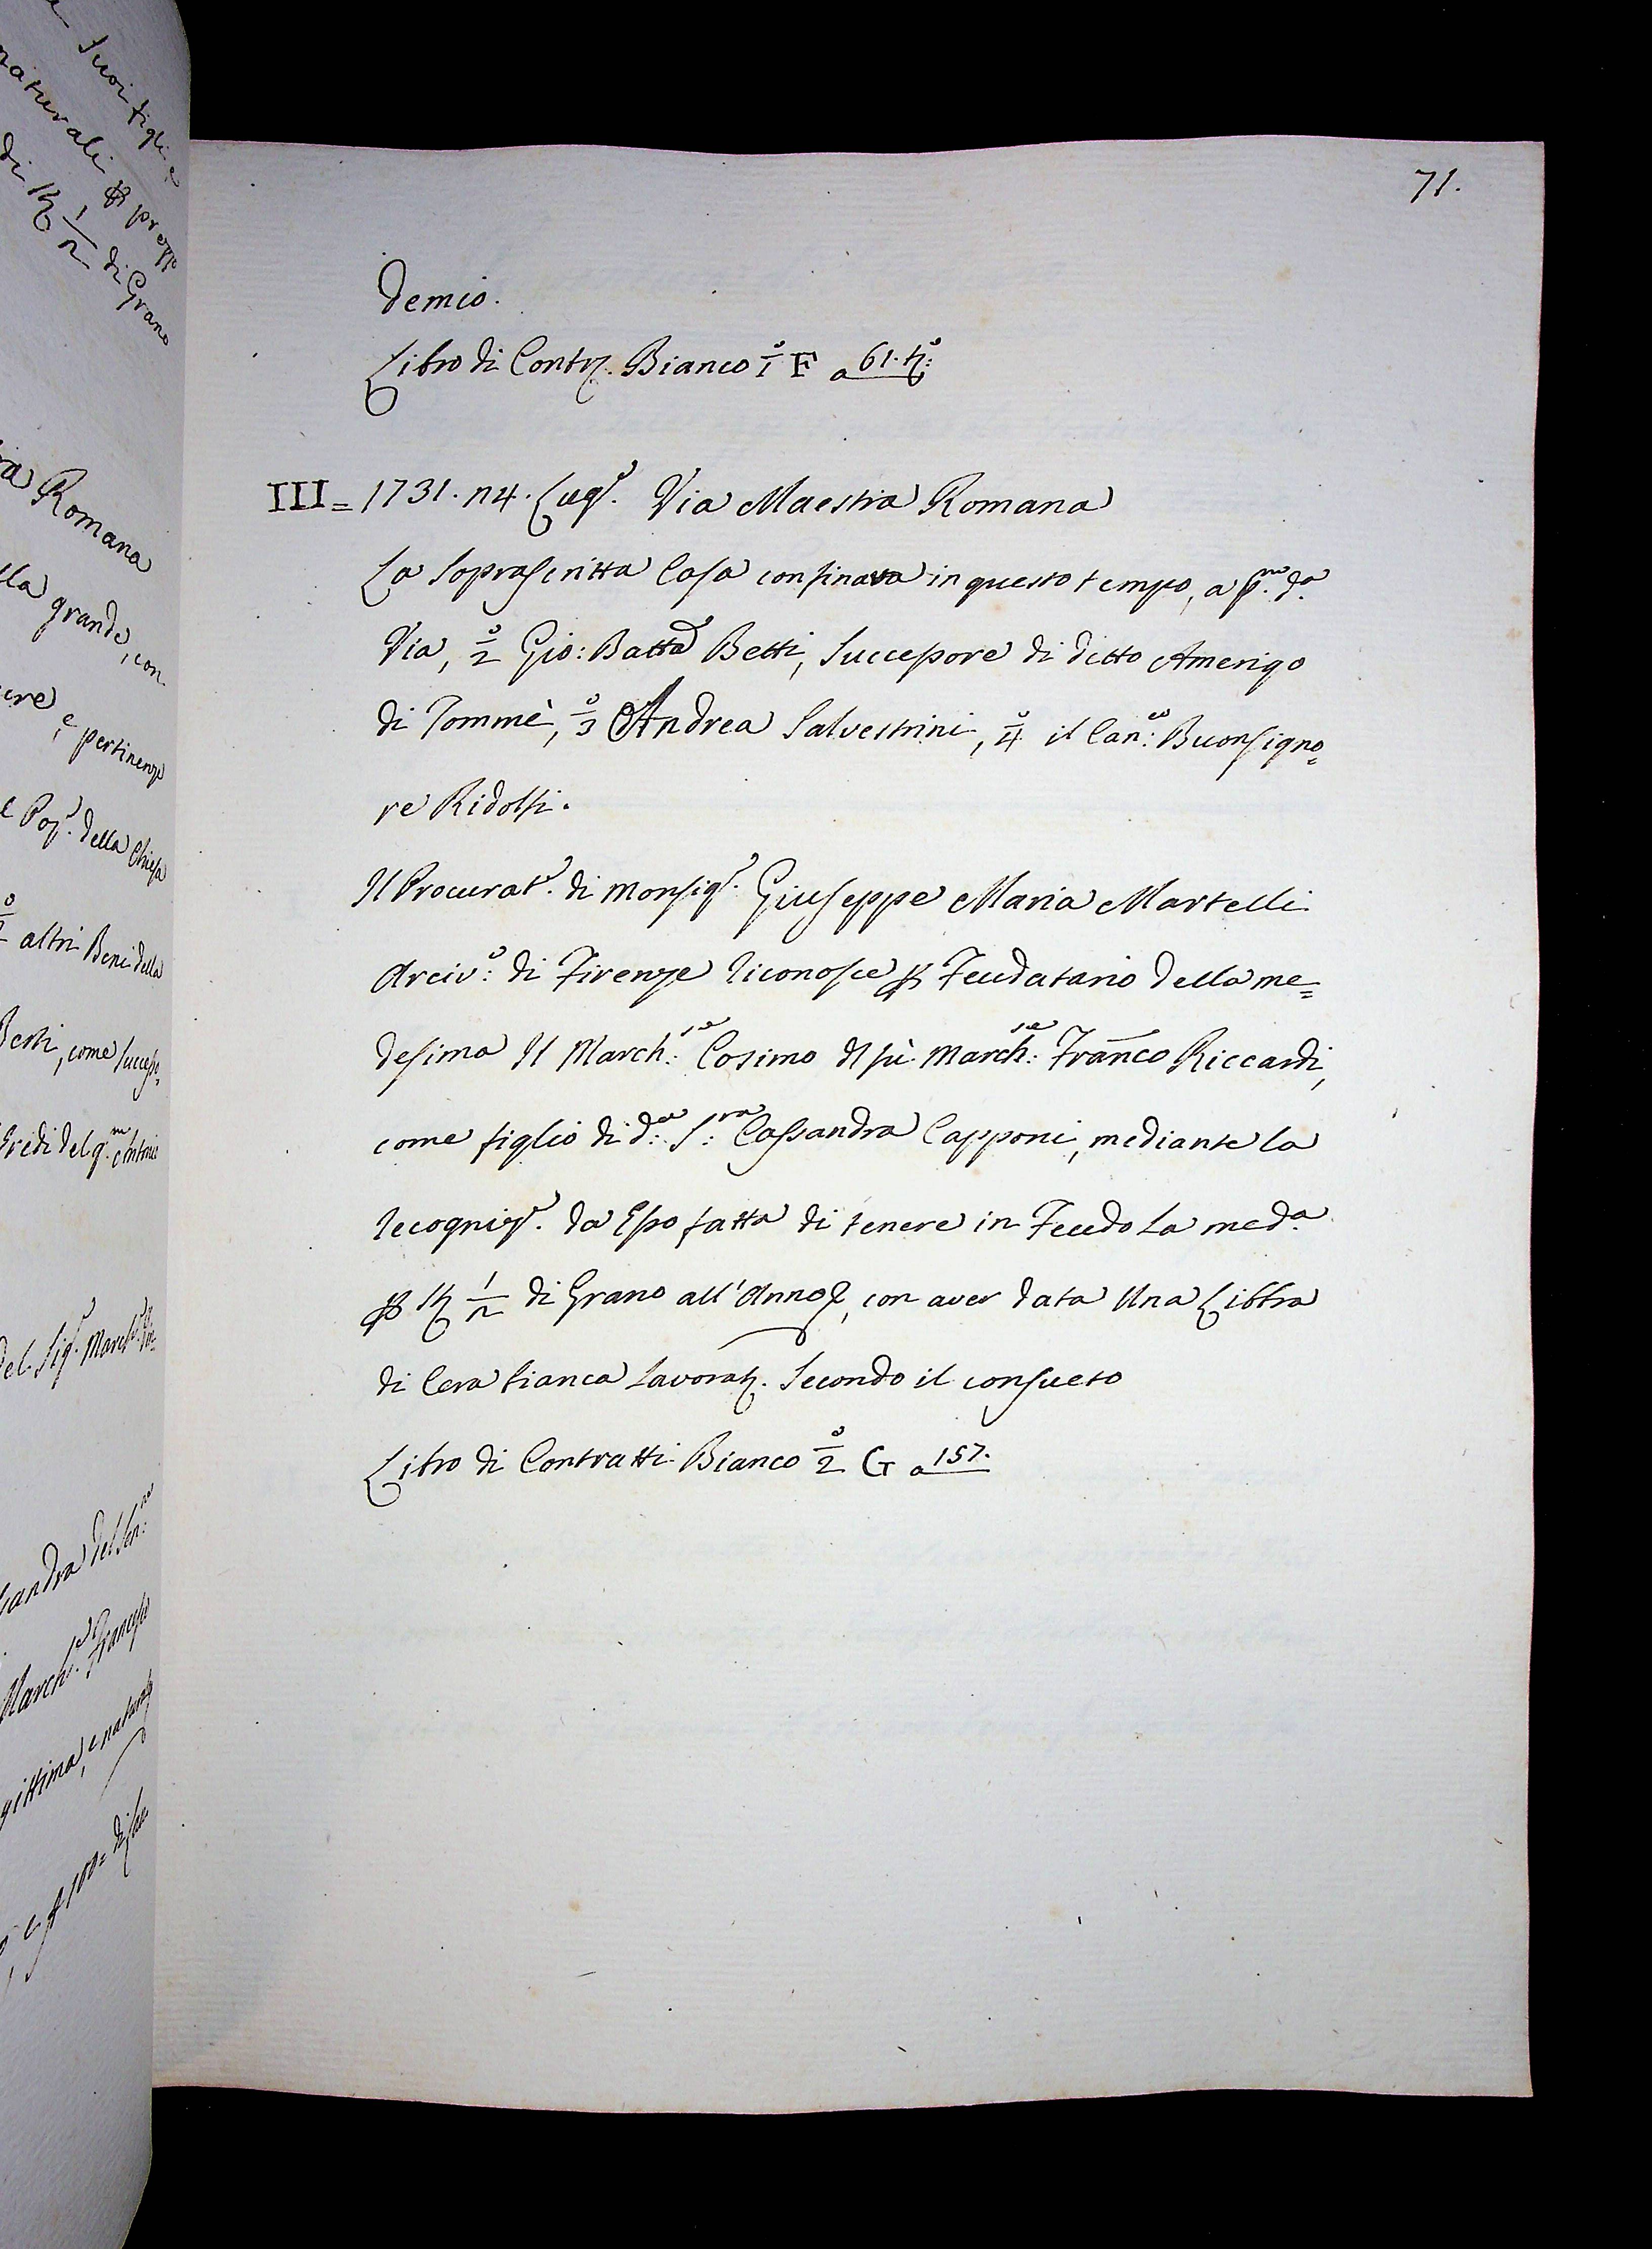 71.
demio.
Libro di Contr. Bianco 1° F a 61. t°:
III = 1731. 24. Lug°. Via Maestra Romana
La soprascritta Casa confinava in questo tempo, a p.mo d.a
Via, 2° Gio: Batta Betti, Successore di ditto Amerigo
di Tommè, 3° Andrea Salvestrini, 4° il Can:co Buonsigno=
re Ridolfi.
Il Procurat.e di Monsig.e Giuseppe Maria Martelli
Arciv.o: di Firenze riconosce p Feudatario della me=
desima Il March:se Cosimo del fù March:se Franco Riccardi,
come figlio di d:a S:ra Cassandra Capponi, mediante la
recogniz.e da Esso fatta di tenere in Feudo la med.a
p 1/2 di Grano all'Anno, con aver data Una Libbra
di Cera bianca lavorat. Secondo il consueto
Libro di Contratti Bianco 2° G a 157.
suoi figli, e
naturali p prezz
di 1/2 di Grano
Romana
grande, con
e pertinenze
Pop°. della Chiesa
altri Beni della
Betti, come success
Eredi del q.m Antonio
del Sig.e March.
del Sen:
March. Francesco
gittima, e natural